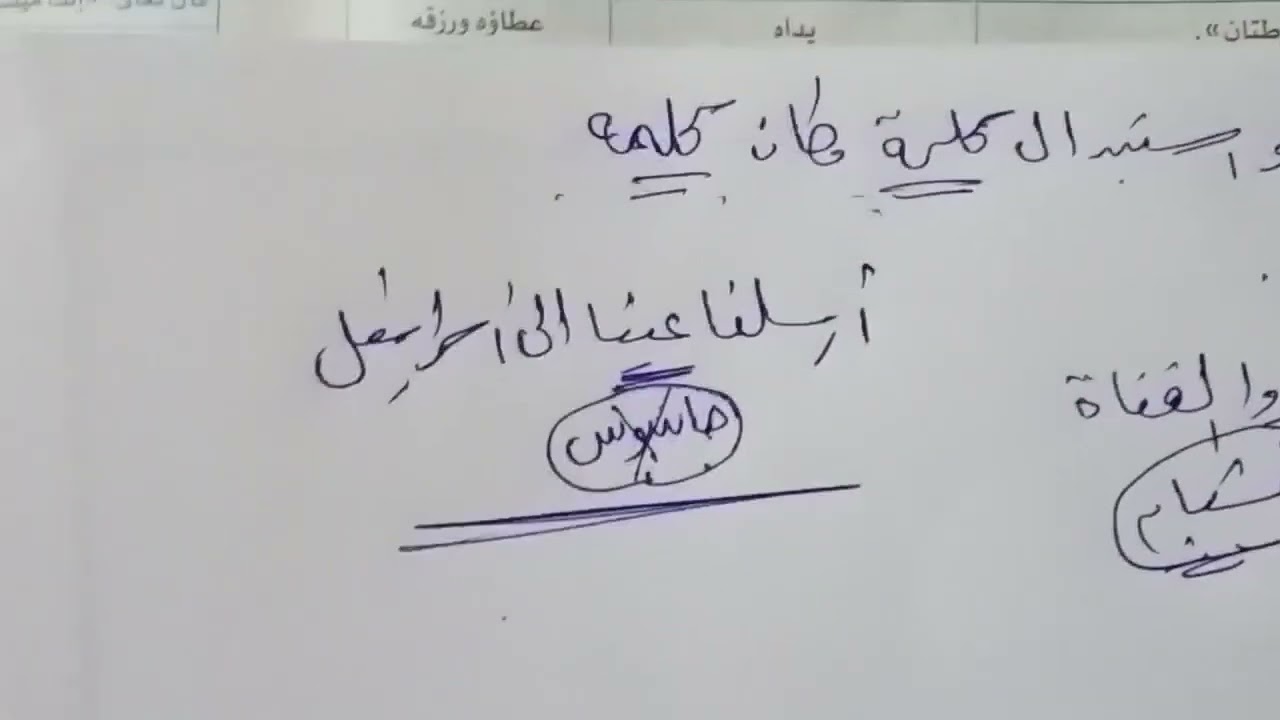 طتان». يداه عطاؤه ورزقه
واستبدال كلمة مكان كلمه
أرسلنا عينا الى أسرائيل
جاسوس
والقناة